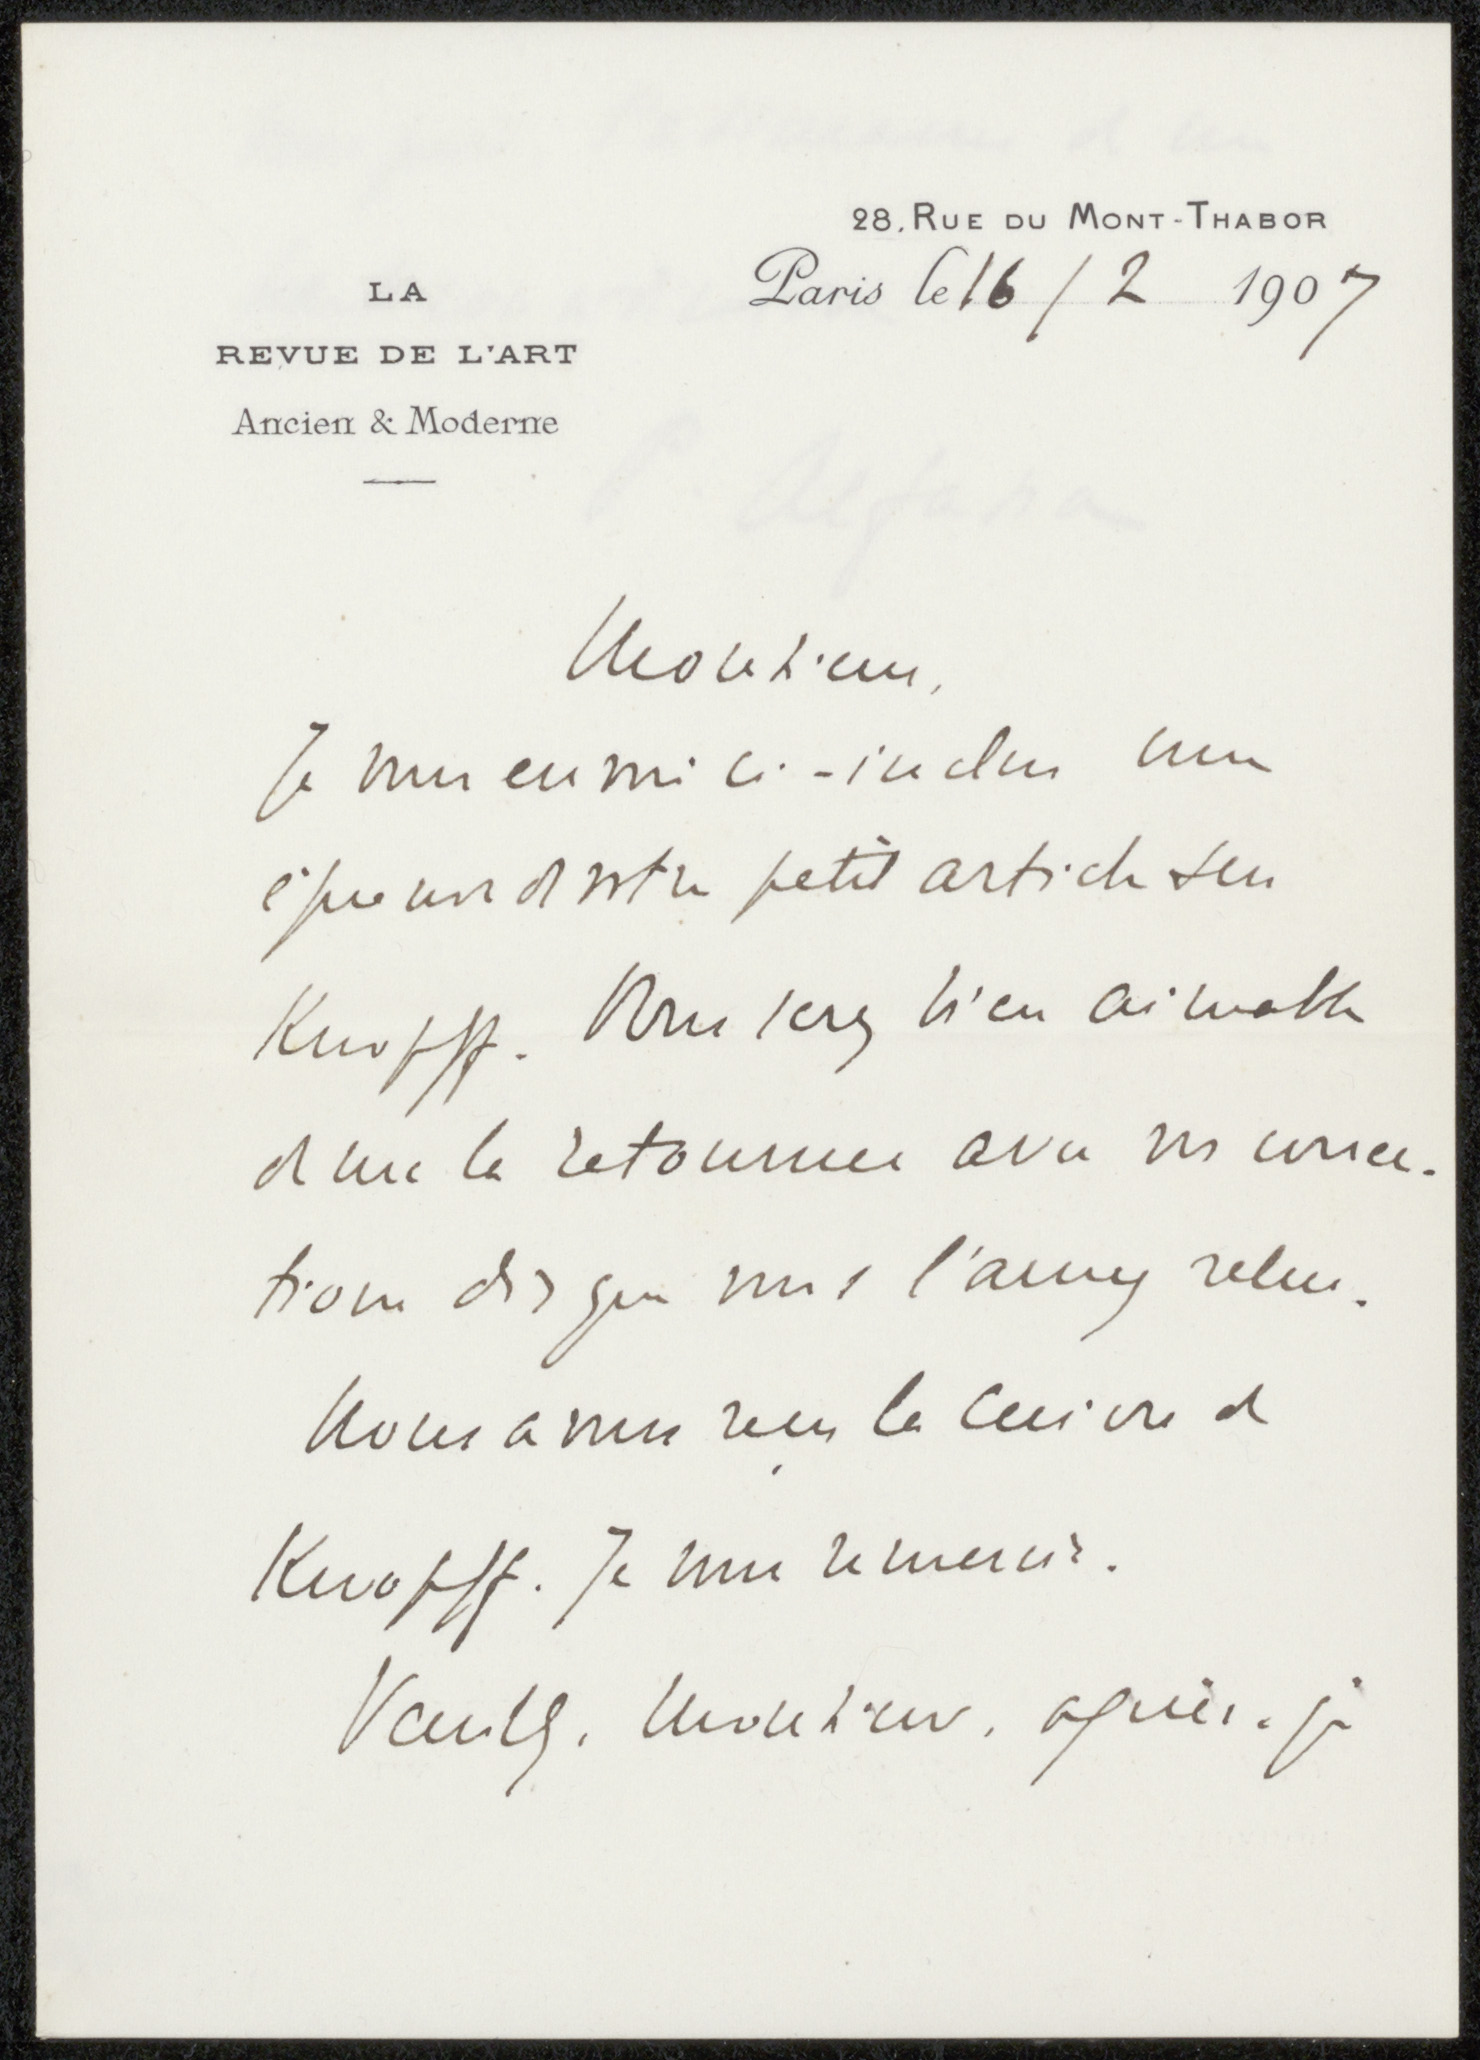 28, RUE DU MONT-THABOR
Paris le 16 / 2 1907
LA
REVUE DE L'ART
Ancien & Moderne
Monsieur,
Je vous envoie ci-inclus une
épreuve de votre petit article sur
Knopff. Vous serez bien aimable
de me la retourner avec vos correc-
tions dès que vous l'aurez relue.
Nous avons reçu le cuivre de
Knopff. Je vous remercie.
Veuillez, Monsieur, agréer. je